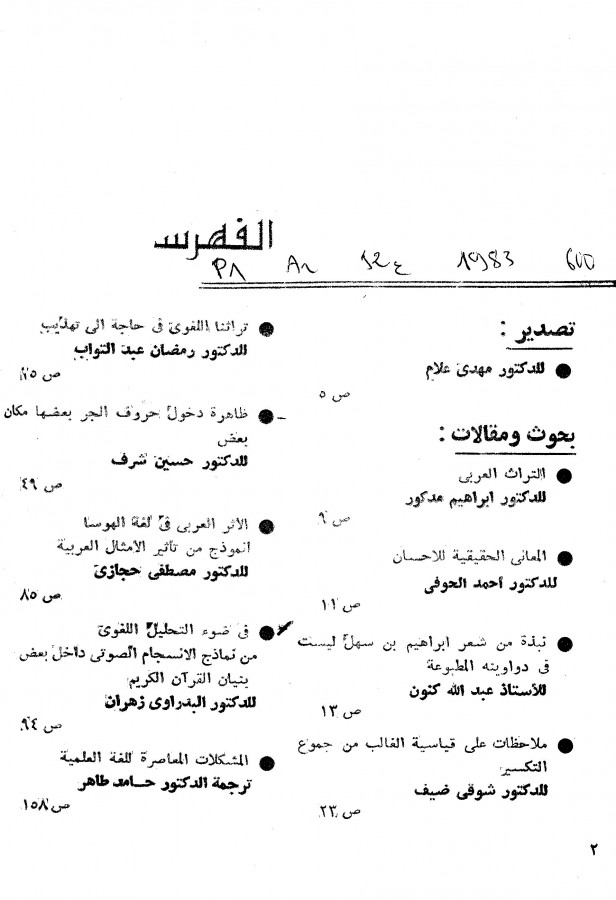 الفهرسـ
P1 Ar 1983 600
تصدير :
● للدكتور مهدى علام
ص ٥
بحوث ومقالات :
● التراث العربى
للدكتور ابراهيم مدكور
ص ٩
● المعانى الحقيقية للاحسان
للدكتور أحمد الحوفى
ص ١١
● نبذة من شعر ابراهيم بن سهل ليست
فى دواوينه المطبوعة
للأستاذ عبد الله كنون
ص ١٣
● ملاحظات على قياسية الغالب من جموع
التكسير
للدكتور شوقى ضيف
ص ٢٣
● تراثنا اللغوى فى حاجة الى تهذيب
للدكتور رمضان عبد التواب
● ظاهرة دخول حروف الجر بعضها مكان
بعض
للدكتور حسين شرف
ص ٤٩
● الأثر العربى فى لغة الهوسا
انموذج من تأثير الأمثال العربية
للدكتور مصطفى حجازى
ص ٨٥
● فى ضوء التحليل اللغوى
من نماذج الانسجام الصوتى داخل بعض
بنيان القرآن الكريم
للدكتور البدراوى زهران
ص ٩٤
● المشكلات المعاصرة للغة العلمية
ترجمة الدكتور حـامد طاهر
ص ١٥٨
٢